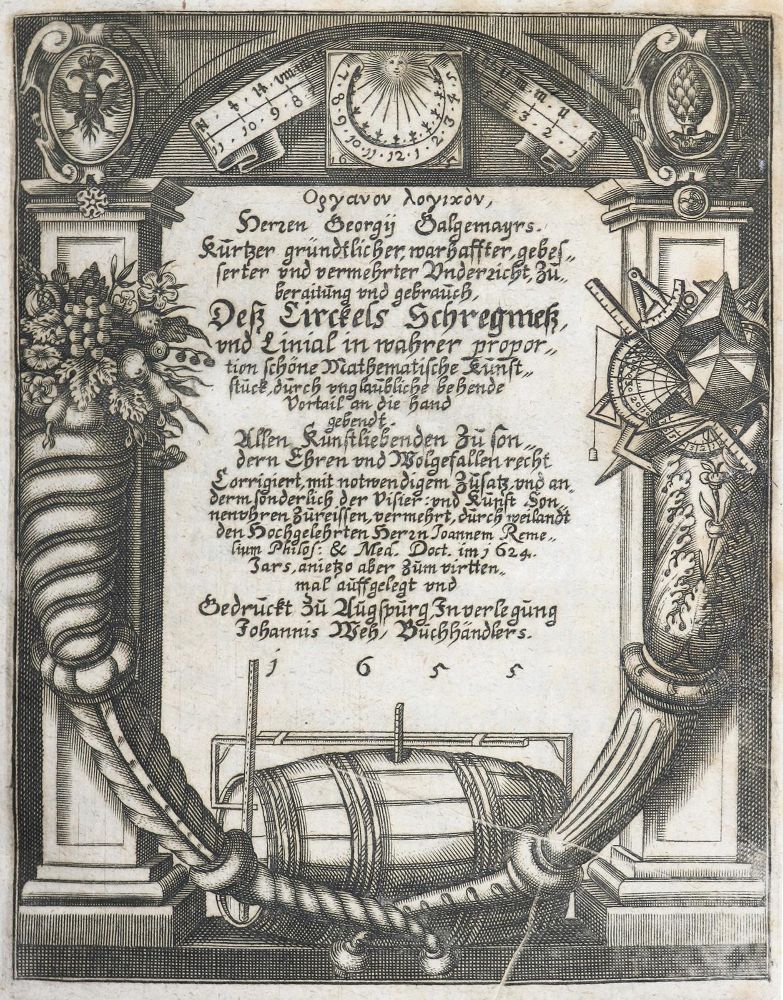 7 8 9 10 11 12 1 2 3 4 5
11 10 9 8
3 2 1
Οργανον λογικὸν,
Herren Georgij Galgemayrs.
Kurtzer gründtlicher, warhaffter, gebes=
serter vnd vermehrter Vnderricht, Zu
beraitung vnd gebrauch,
Deß Circkels Schregmeß,
vnd Linial in wahrer propor=
tion schöne Mathematische Kunst=
stück, durch vnglaubliche behende
Vortail an die hand
gebendt.
Allen Kunstliebenden Zu son=
dern Ehren vnd Wolgefallen recht
Corrigiert, mit notwendigem Zusatz vnd an=
derm sonderlich der Visier: vnd Kunst Son=
nenvhren Zureissen, vermehrt, durch weilandt
den Hochgelehrten Herrn Ioannem Reme=
lium Philos: & Med. Doct. im 1624.
Jars, anietzo aber Zum virtten=
mal auffgelegt vnd
Gedruckt Zu Augspurg In verlegung
Johannis Weh, Buchhändlers.
1 6 5 5